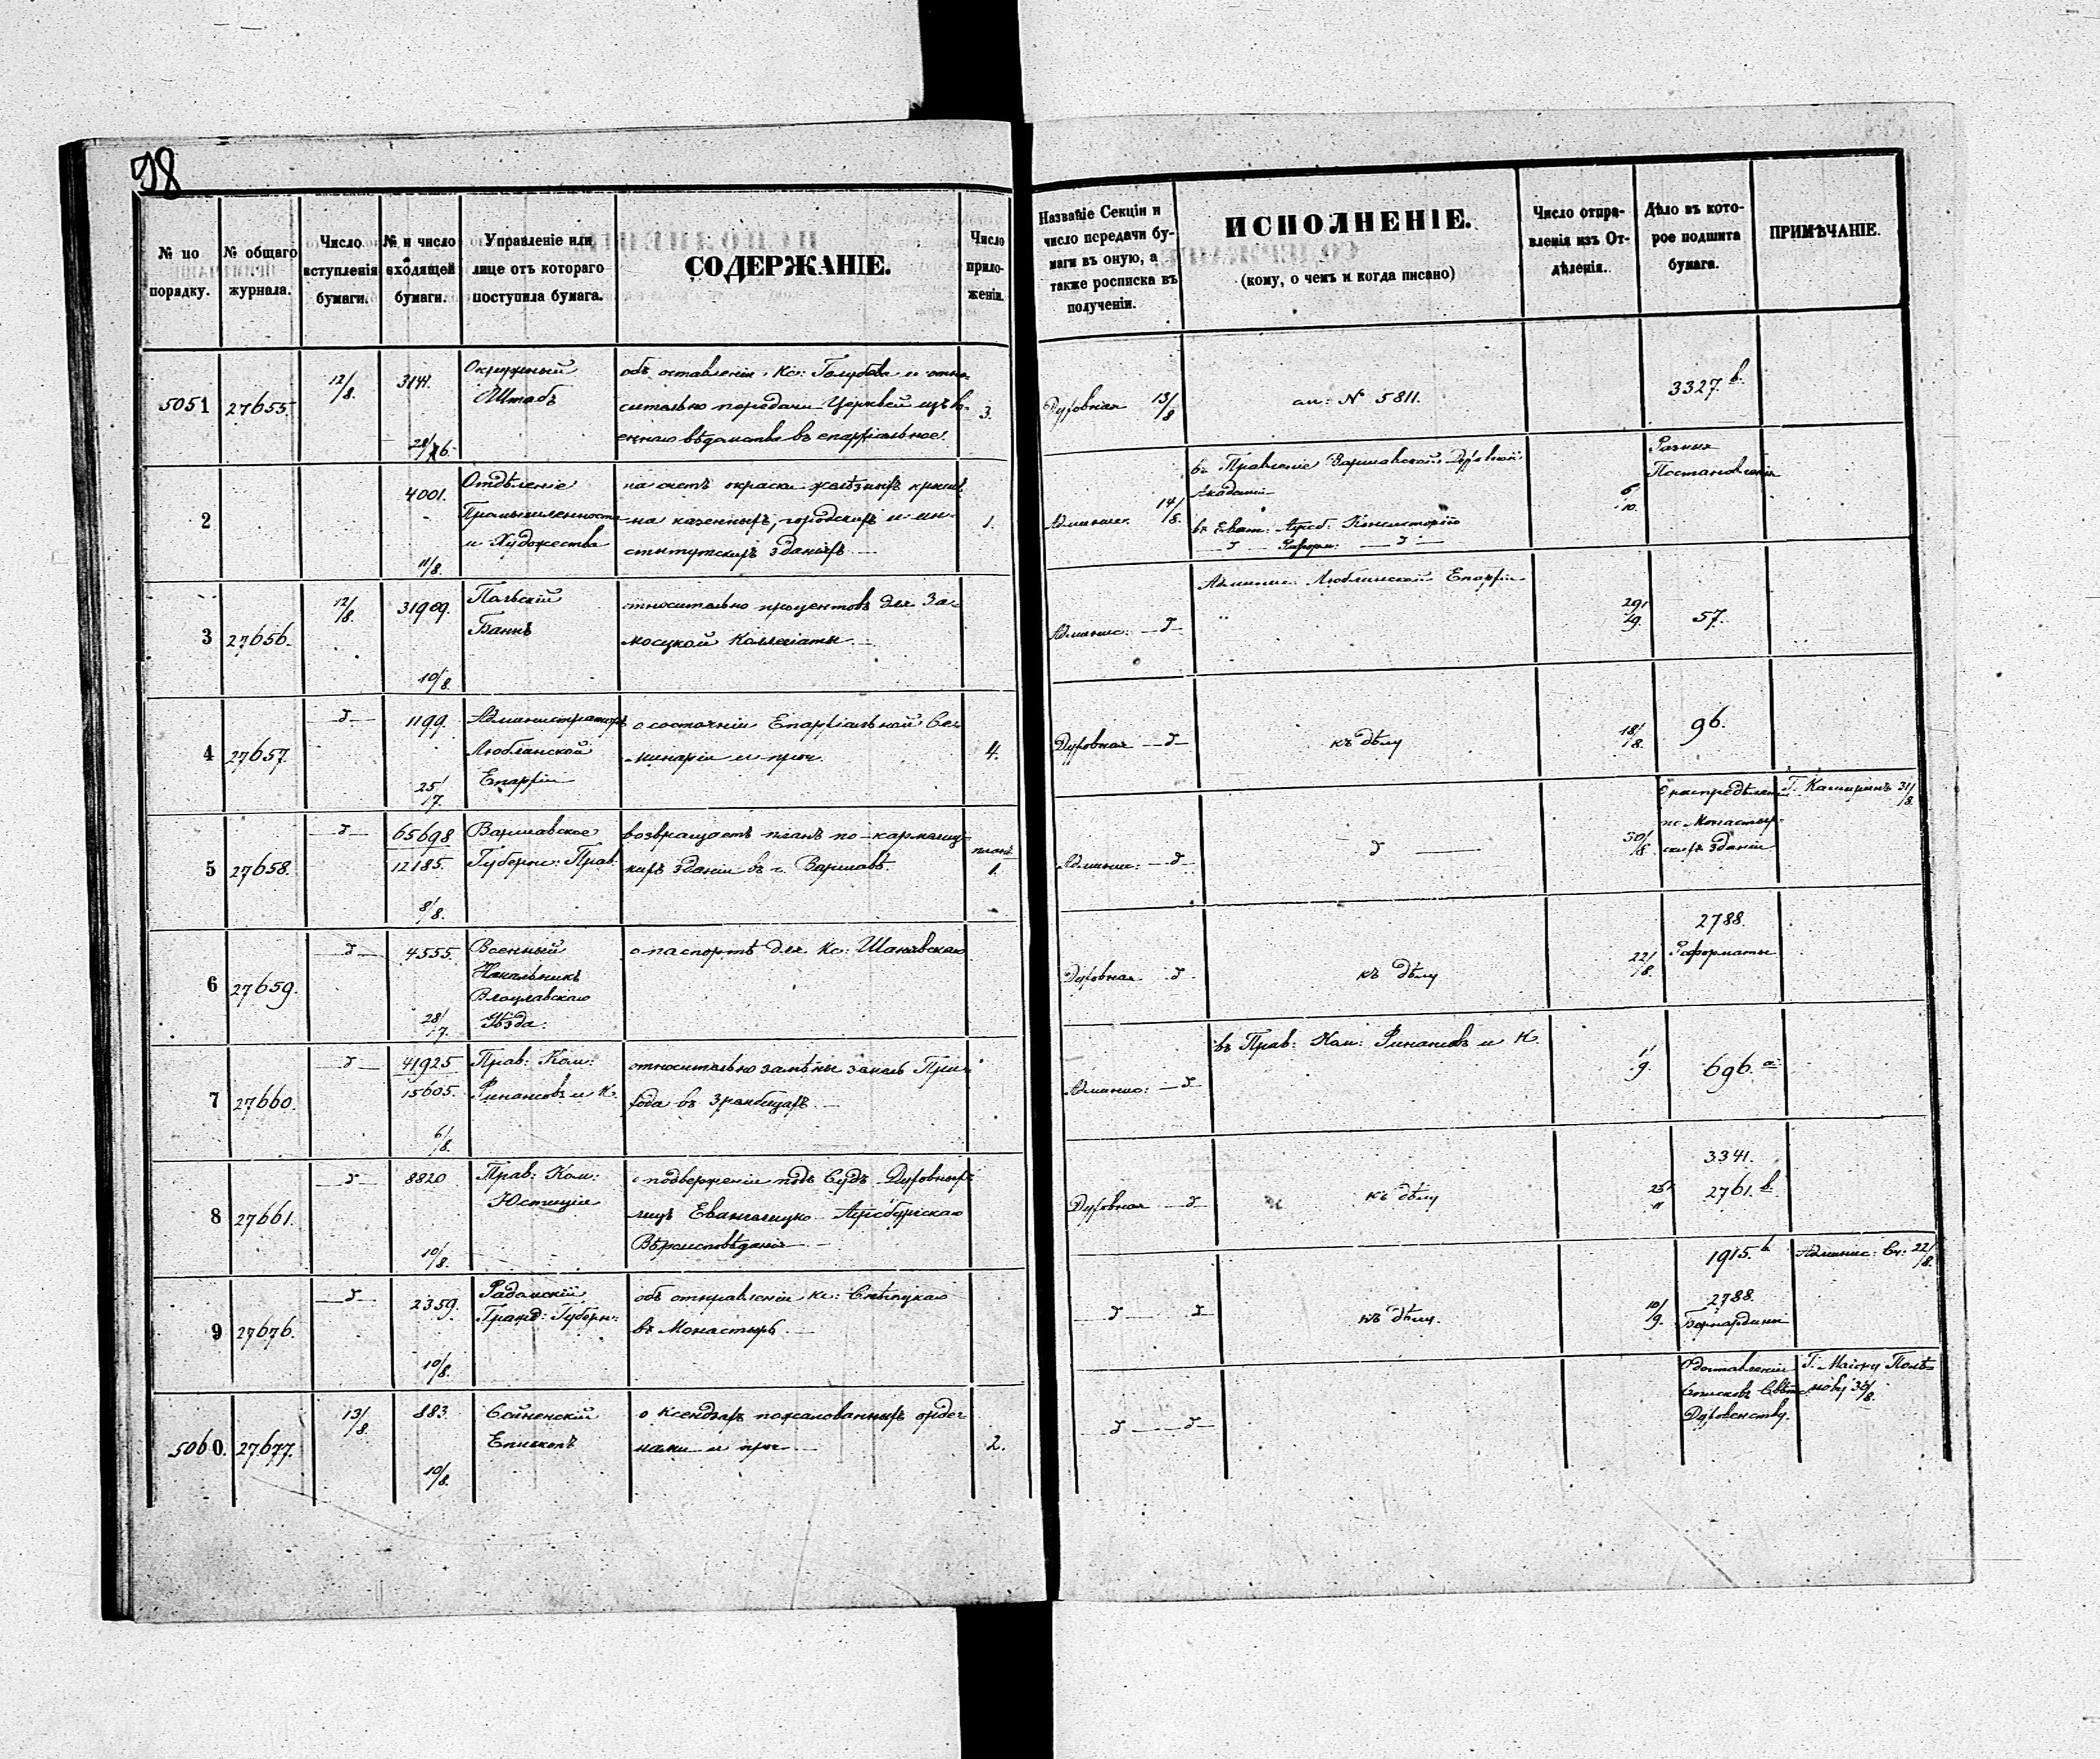 98
№ по порядку.
№ общаго журнала.
Число вступленія бумаги.
№ и число входящей бумаги.
Управленіе или лице отъ котораго поступила бумага.
СОДЕРЖАНІЕ.
Число приложеній.
Названіе Секціи и число передачи бумаги въ оную, а также росписка въ полученіи.
ИСПОЛНЕНІЕ.
(кому, о чемъ и когда писано)
Число отправленія изъ Отдѣленія.
Дѣло въ которое подшита бумага.
ПРИМѢЧАНІЕ.
5051 27655. 12/8. 3141. 28/6.
Окружный
Штабъ
объ оставленіи Кс: Голубова и отно-
сительно передачи Церквей изъ во-
еннаго вѣдомства въ епархіальное.
3.
Духовная 13/8
см: № 5811.
3327. в.
2 4001. 11/8.
Отдѣленіе
Промышленности
и Художествъ
на счетъ окраски желѣзныхъ крышъ
на казенныхъ, городскихъ и ин-
ститутскихъ зданіяхъ
1.
Админис. 14/8.
въ Правленіе Варшавской Духовной
Академіи
въ Еванг: Аугсб: Консисторію
— д — Реформ: — д —
6/10.
Разныя
Постановленія
3 27656. 12/8. 31909. 10/8.
Польскій
Банкъ
относительно процентовъ для За-
мосцкой Коллегіаты
Админис: — д —
Админис: Люблинской Епархіи
29/9.
57.
4 27657. — д — 1199. 25/7.
Администраторъ
Люблинской
Епархіи
о состояніи Епархіальной Се-
минаріи и проч.
4.
Духовная — д —
къ дѣлу
18/8.
96.
5 27658. — д — 65698 12185. 8/8.
Варшавское
Губерн: Прав:
возвращаетъ планъ по-кармелиц-
кихъ зданій въ г. Варшавѣ.
планъ 1.
Админис: — д —
д —
30/8.
О распредѣленіи
по-Монастыр-
скихъ зданій
Г. Каширинъ 31/8.
6 27659. — д — 4555. 28/7.
Военный
Начальникъ
Влоцлавскаго
Уѣзда.
о паспортѣ для Кс: Шанявскаго
Духовная д —
къ дѣлу
22/8.
2788.
Реформаты
7 27660. — д — 41925 15605. 6/8.
Прав: Ком:
Финансовъ и К.
относительно замѣны земель При-
хода въ
Админис: — д —
въ Прав: Ком: Финансовъ и К.
1/9.
696. а
8 27661. — д — 8820 10/8.
Прав: Ком:
Юстиціи
о подверженіи подъ Судъ Духовныхъ
лицъ Евангелицко-Аугсбургскаго
Вѣроисповѣданія
Духовная — д —
къ дѣлу
25/11
3341.
2761. в
9 27676. — д — 2359. 10/8.
Радомскій
Гражд: Губерн:
объ отправленіи Кс:
въ Монастырь
— д — д —
къ дѣлу.
10/9.
1915. в
2788.
Бернардины
Админис: Сч: 22/8.
5060. 27677. 13/8. 883. 10/8.
Сейненскій
Епископъ
о ксендзахъ пожалованныхъ орде-
нами и проч
2.
— д — д —
О доставленіи
Списковъ Свѣтс.
Духовенству.
Г. Маіору Полѣ-
нову 30/8.